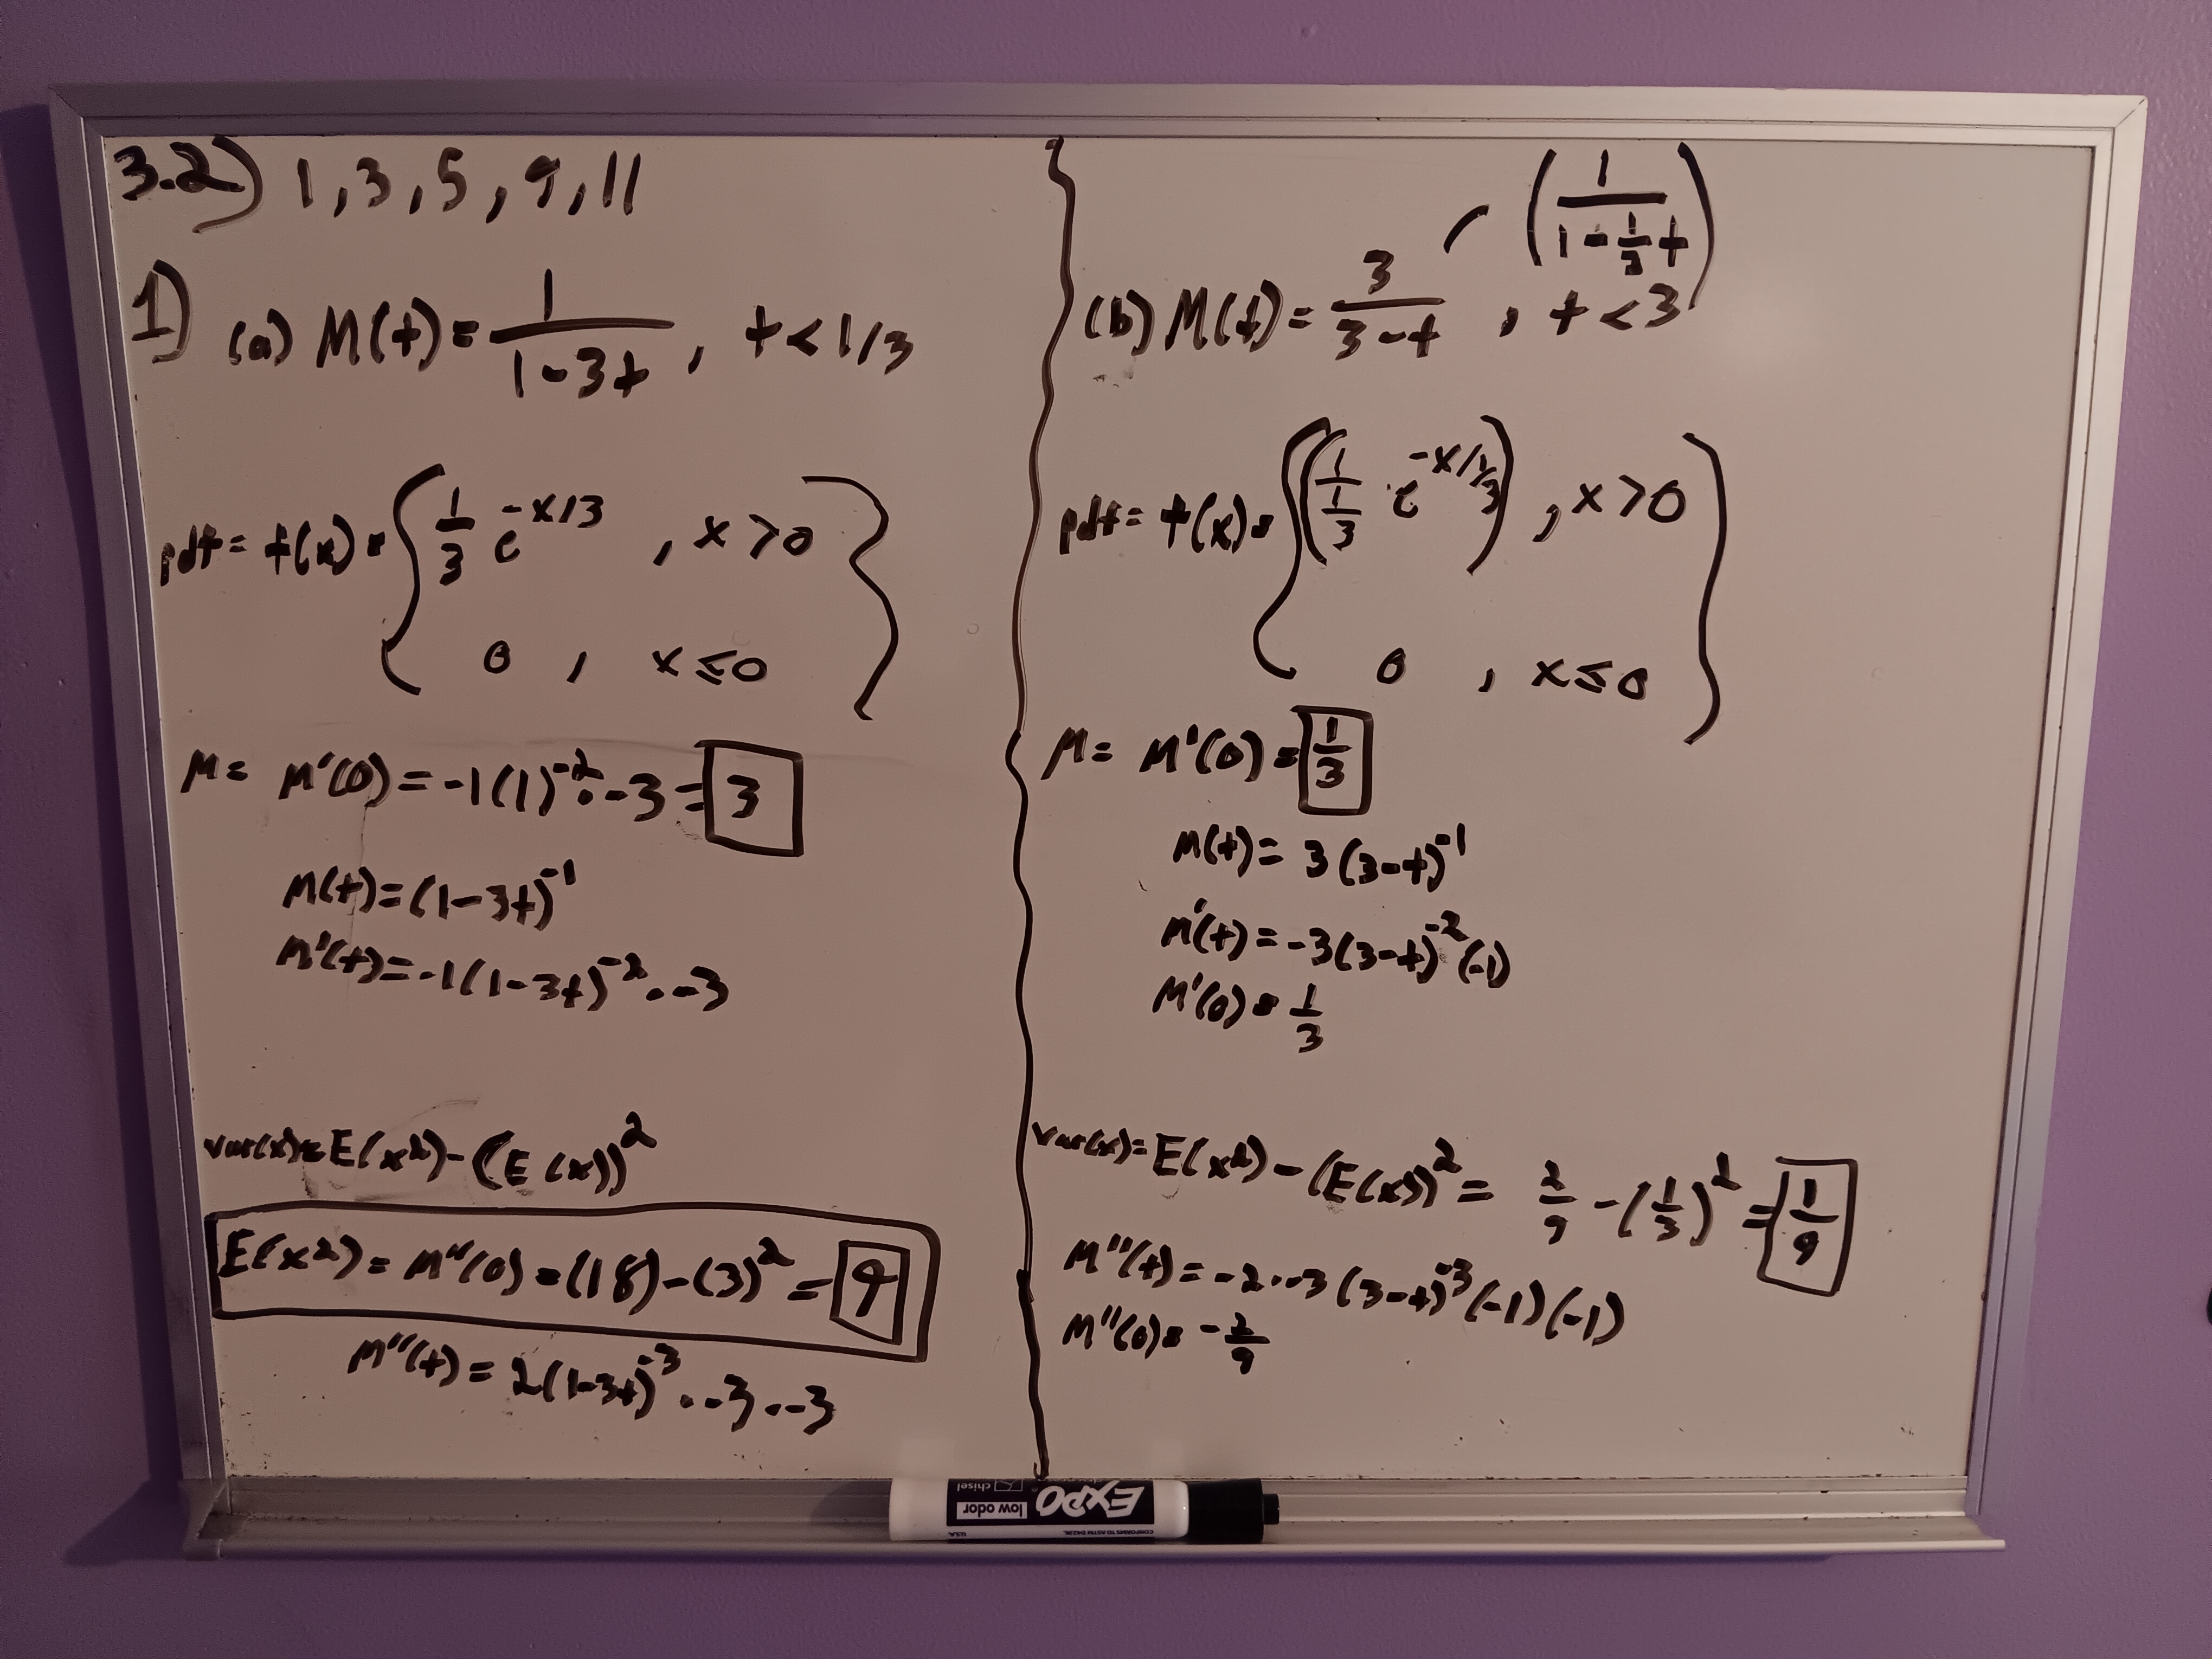 3.2) 1, 3, 5, 9, 11
1) (a) M(t) = 1/(1-3t) , t < 1/3
pdf = f(x) = { 1/3 e^(-x/3) , x > 0
0 , x ≤ 0 }
M = M'(0) = -1(1)^-2 · -3 = 3
M(t) = (1-3t)^-1
M'(t) = -1(1-3t)^-2 · -3
var(x) = E(x^2) - (E(x))^2
E(x^2) = M''(0) = (18) - (3)^2 = 9
M''(t) = 2(1-3t)^-3 · -3 · -3
(1/(1 - 1/3 t))
(b) M(t) = 3/(3-t) , t < 3
pdf = f(x) = { (1/(1/3) · e^(-x/(1/3))) , x > 0
0 , x ≤ 0 }
M = M'(0) = 1/3
M(t) = 3(3-t)^-1
M'(t) = -3(3-t)^-2 (-1)
M'(0) = 1/3
var(x) = E(x^2) - (E(x))^2 = 2/9 - (1/3)^2 = 1/9
M''(t) = -2 · -3(3-t)^-3 (-1)(-1)
M''(0) = -2/9
EXPO
low odor
chisel
CONFORMS TO ASTM D4236.
U.S.A.